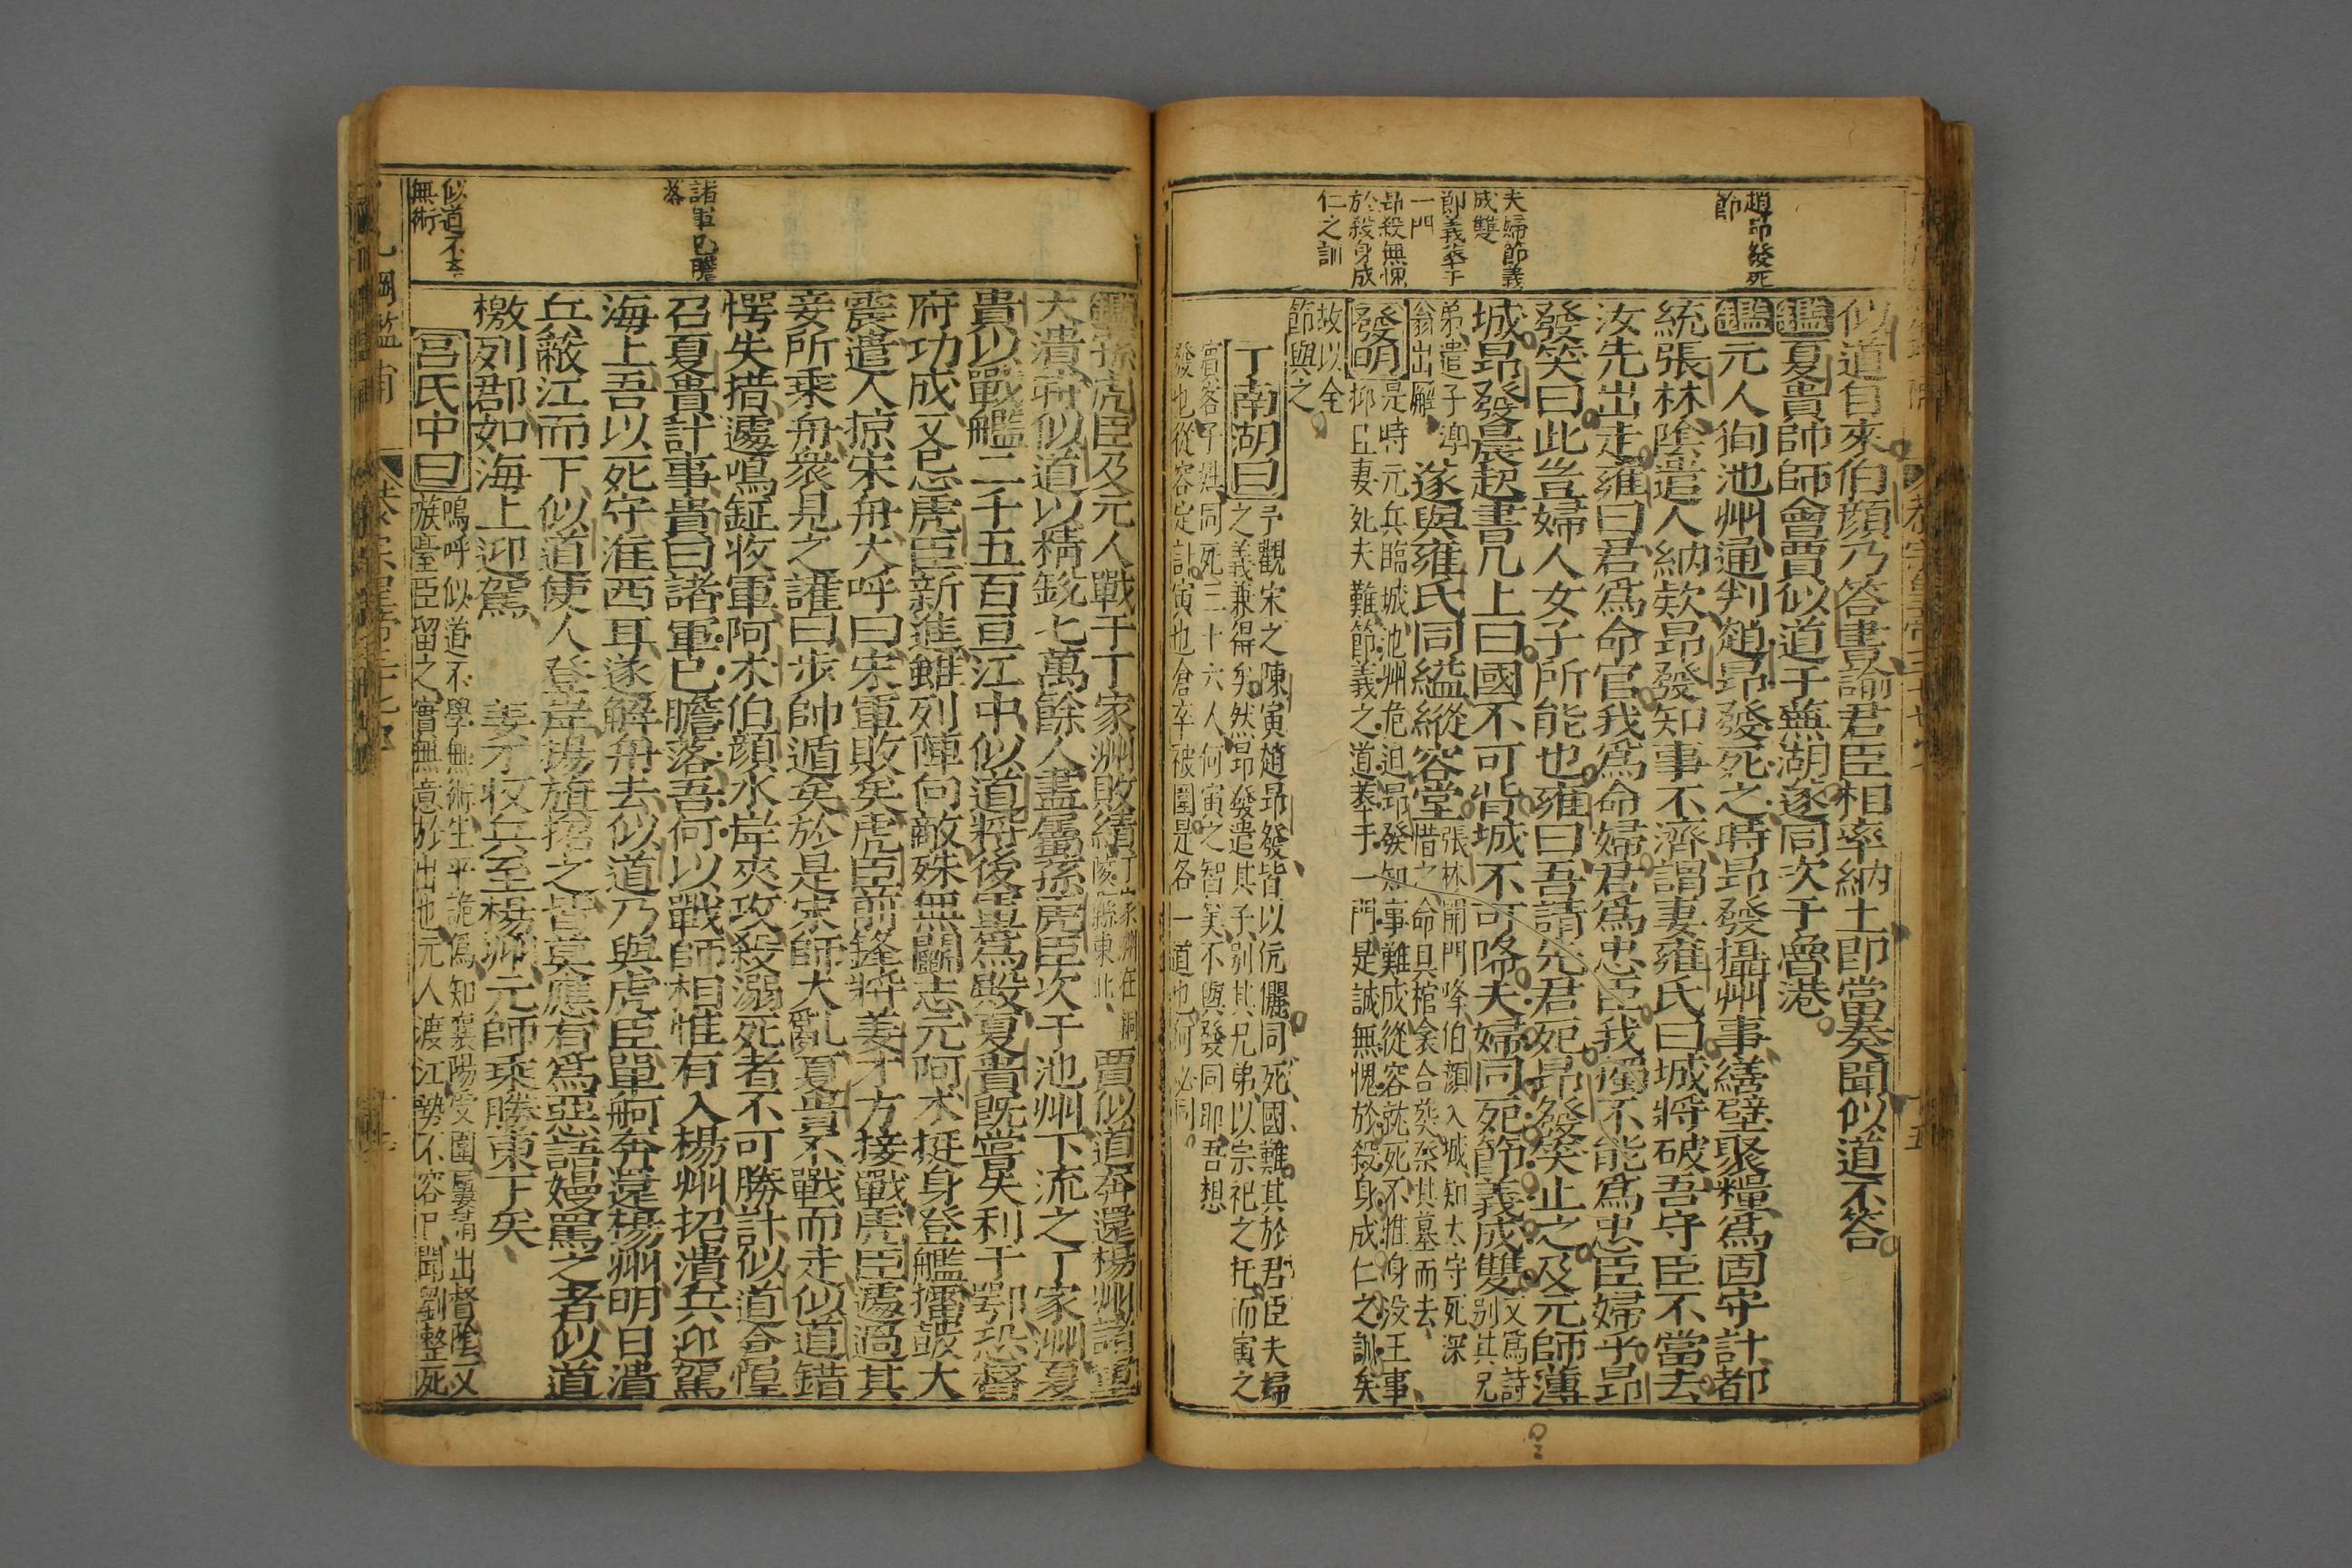 趙昻發死
節
夫婦節義
成雙
節義萃于
一門
昻發無愧
於殺身成
仁之訓
似道自來伯顔乃答書諭君臣相率納土卽當奏聞似道不答
鑑夏貴帥師會賈似道于蕪湖遂同次于魯港
鑑元人徇池州通判趙昻發死之時昻發攝州事繕壁聚糧爲固守計都
統張林陰遣人納欵昻發知事不濟謂妻雍氏曰城將破吾守臣不當去
汝先出走雍曰君爲命官我爲命婦君爲忠臣我獨不能爲忠臣婦乎昻
發笑曰此豈婦人女子所能也雍曰吾請先君死昻發笑止之及元師薄
城昻發晨起書几上曰國不可背城不可降夫婦同死節義成雙又爲詩
别其兄
弟遣子
翁出廨遂與雍氏同縊從容堂張林開門降伯顔入城知太守死深
惜之命具棺衾合葬祭其墓而去
發明是時元兵臨城池州危迫昻發知事難成從容就死不惟身没王事
抑且妻死夫難節義之道萃于一門是誠無愧於殺身成仁之訓矣
故以全
節與之
丁南湖曰予觀宋之陳寅趙昻發皆以伉儷同死國難其於君臣夫婦
之義兼得矣然昻發遣其子别其兄弟以宗祀之托而寅之
賓客子姓同死二十六人何寅之智笑不與發同耶吾想
發也從容定計寅也倉卒被圍是各一道也何必同
諸軍已膽
落
似道不學
無術
鑑孫虎臣及元人戰于丁家洲敗績丁家洲在銅
陵縣東北賈似道奔還楊州諸軍
大潰賈似道以精銳七萬餘人盡屬孫虎臣次于池州下流之丁家洲夏
貴以戰艦二千五百亘江中似道將後軍爲殿夏貴旣嘗失利于鄂恐督
府功成又忌虎臣新進雖列陣向敵殊無鬭志元阿术挺身登艦擂鼓大
震遣人掠宋舟大呼曰宋軍敗矣虎臣前鋒將姜才方接戰虎臣遽過其
妾所乘舟衆見之讙曰步帥遁矣於是宋師大亂夏貴不戰而走似道錯
愕失措遽鳴鉦收軍阿术伯顔水岸夾攻殺溺死者不可勝計似道倉惶
召夏貴計事貴曰諸軍已膽落吾何以戰師相惟有入楊州招潰兵迎駕
海上吾以死守淮西耳遂解舟去似道乃與虎臣單舸奔還楊州明日潰
兵蔽江而下似道使人登岸揚旗招之皆莫應有爲惡語嫚罵之者似道
檄列郡如海上迎駕 姜才收兵至楊州元師乘勝東下矣
呂氏中曰嗚呼似道不學無術生平詭僞知襄陽受圍屢請出督陰又
嗾臺臣留之實無意於出也元人渡江勢不容已聞劉整死